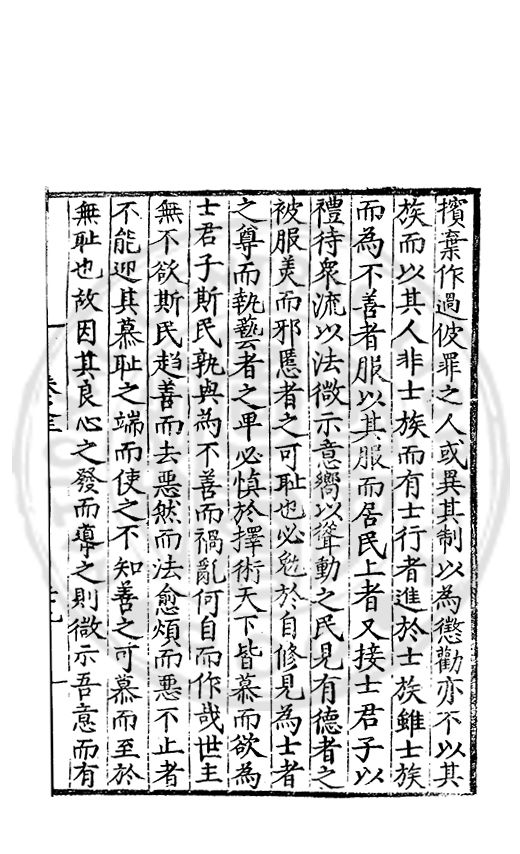 擯棄作過彼罪之人或異其制以為懲勸亦不以其
族而以其人非士族而有士行者進於士族雖士族
而為不善者服以其服而居民上者又接士君子以
禮待衆流以法微示意嚮以聳動之民見有德者之
被服美而邪慝者之可耻也必勉於自修見為士者
之尊而執藝者之卑必慎於擇術天下皆慕而欲為
士君子斯民孰與為不善而禍亂何自而作哉世主
無不欲斯民趨善而去惡然而法愈煩而惡不止者
不能迎其慕耻之端而使之不知善之可慕而至於
無耻也故因其良心之發而導之則微示吾意而有
卷三